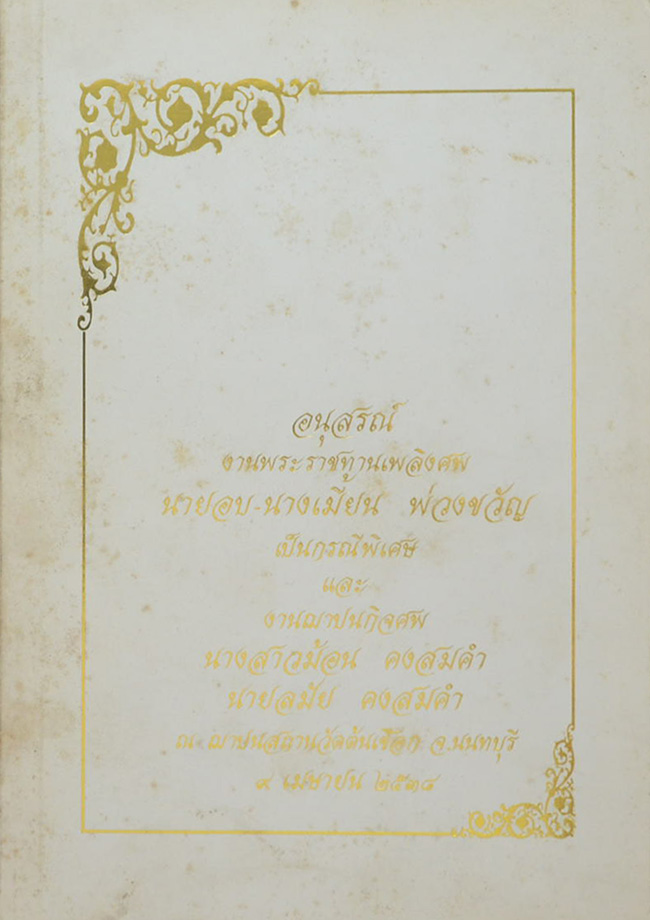 อนุสรณ์
งานพระราชทานเพลิงศพ
นายอบ-นางเมียน พ่วงขวัญ
เป็นกรณีพิเศษ
และ
งานฌาปนกิจศพ
นางสาวม้อน คงสมคำ
นายสมัย คงสมคำ
ณ ฌาปนสถานวัดต้นเชือก จ.นนทบุรี
๙ เมษายน ๒๕๓๘